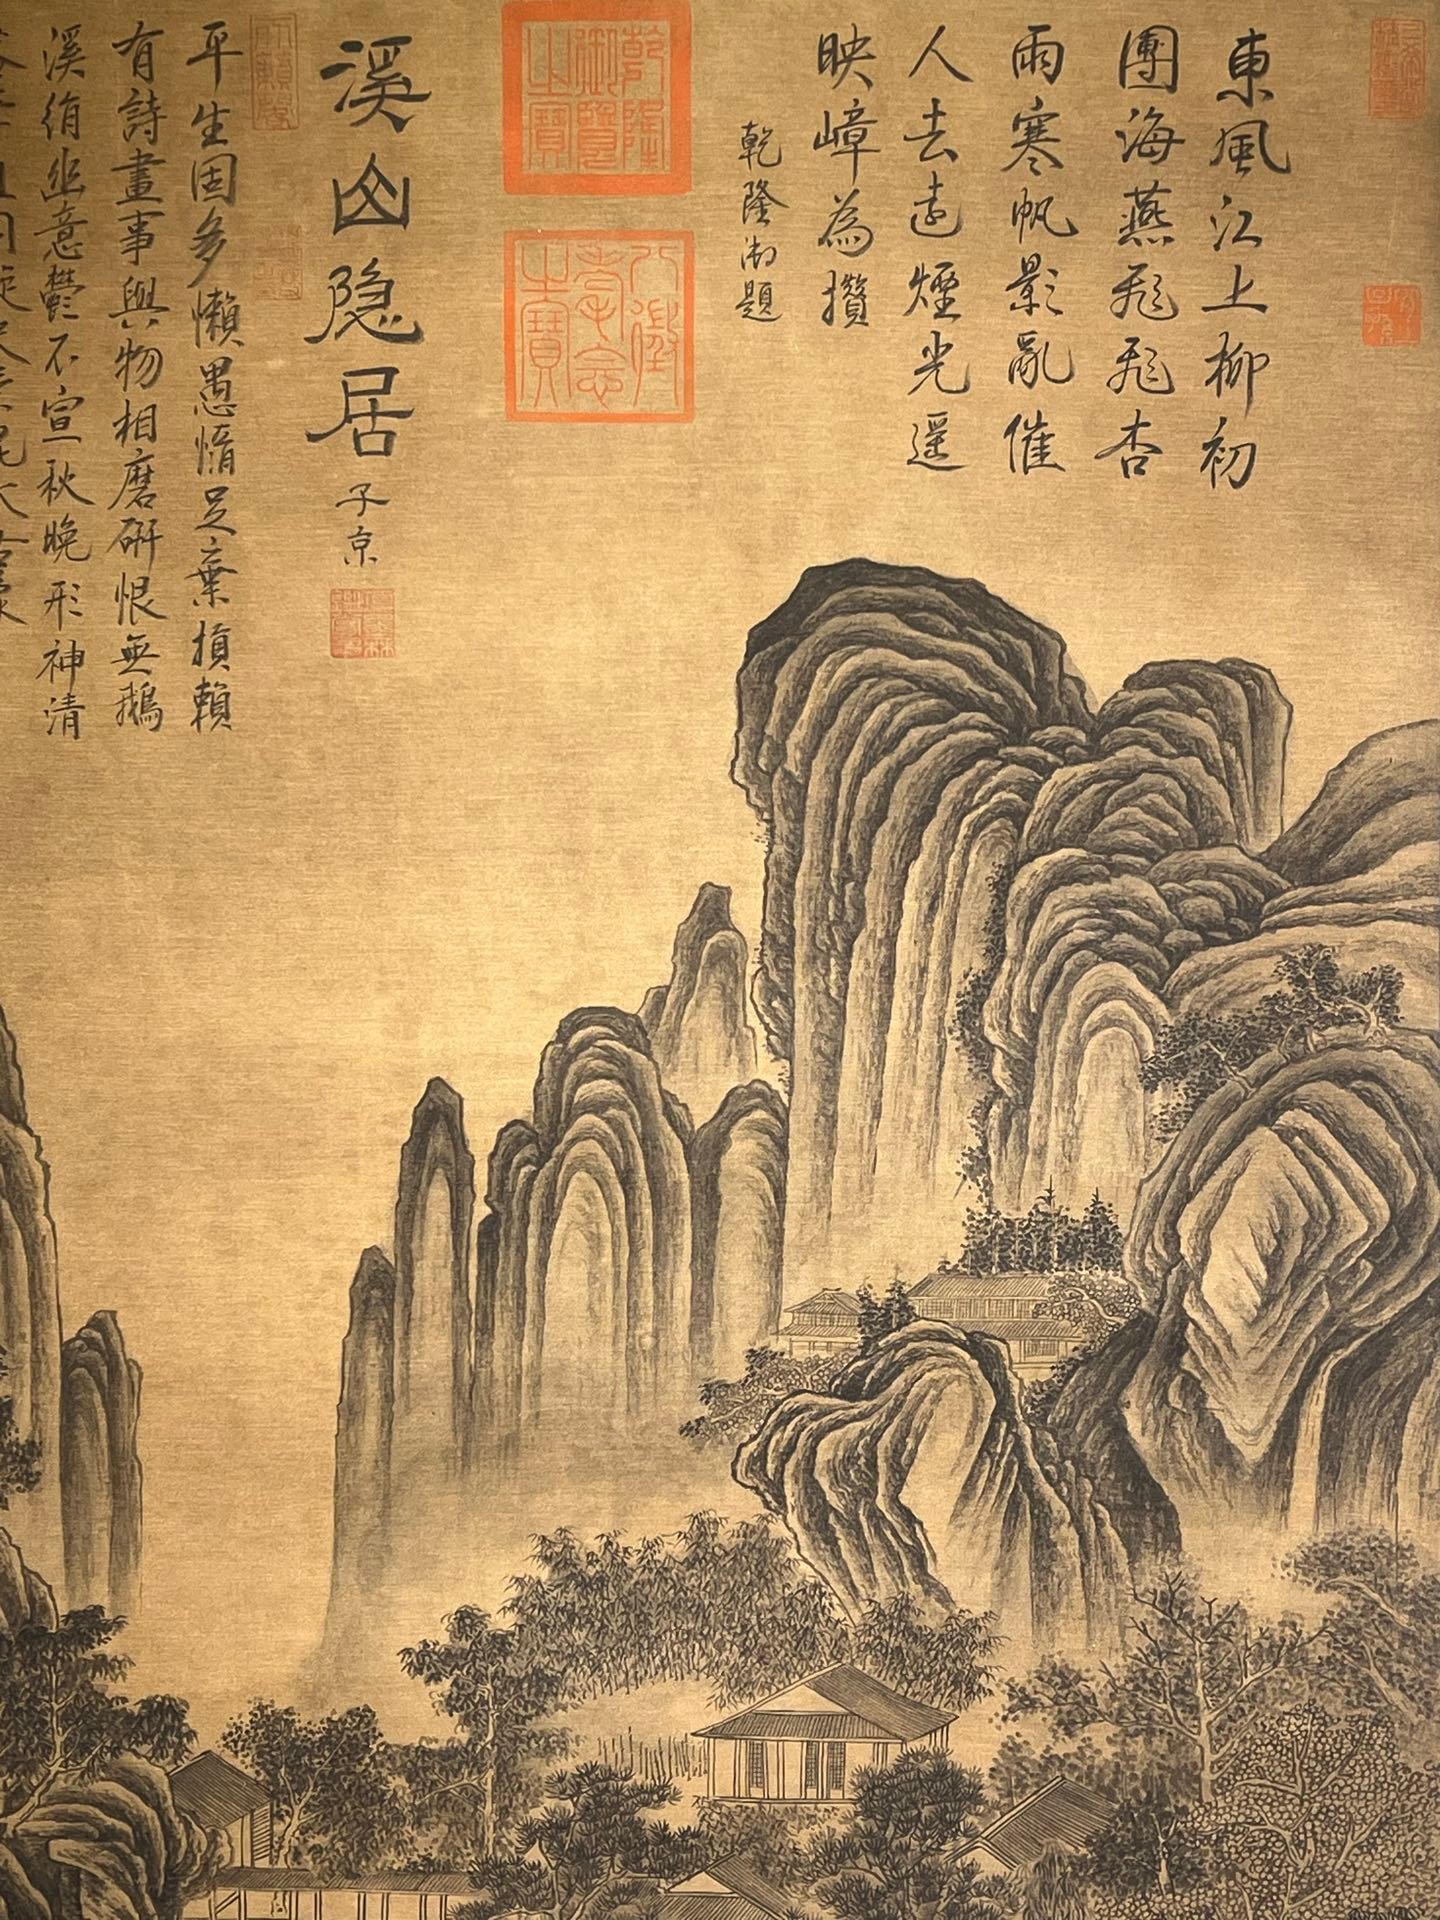 東風江上柳初
團海燕飛飛杏
雨寒帆影亂催
人去遠煙光遥
映嶂為攢
乾隆御題
乾隆
御覽
之寶
八徵
耄念
之寶
溪山隐居
子京
平生固多懶愚惰足棄損賴
有詩畫事與物相磨硏恨無鵝
溪絹幽意鬱不宣秋晚形神清